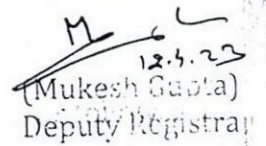 12.4.23
(Mukesh Gupta)
Deputy Registrar